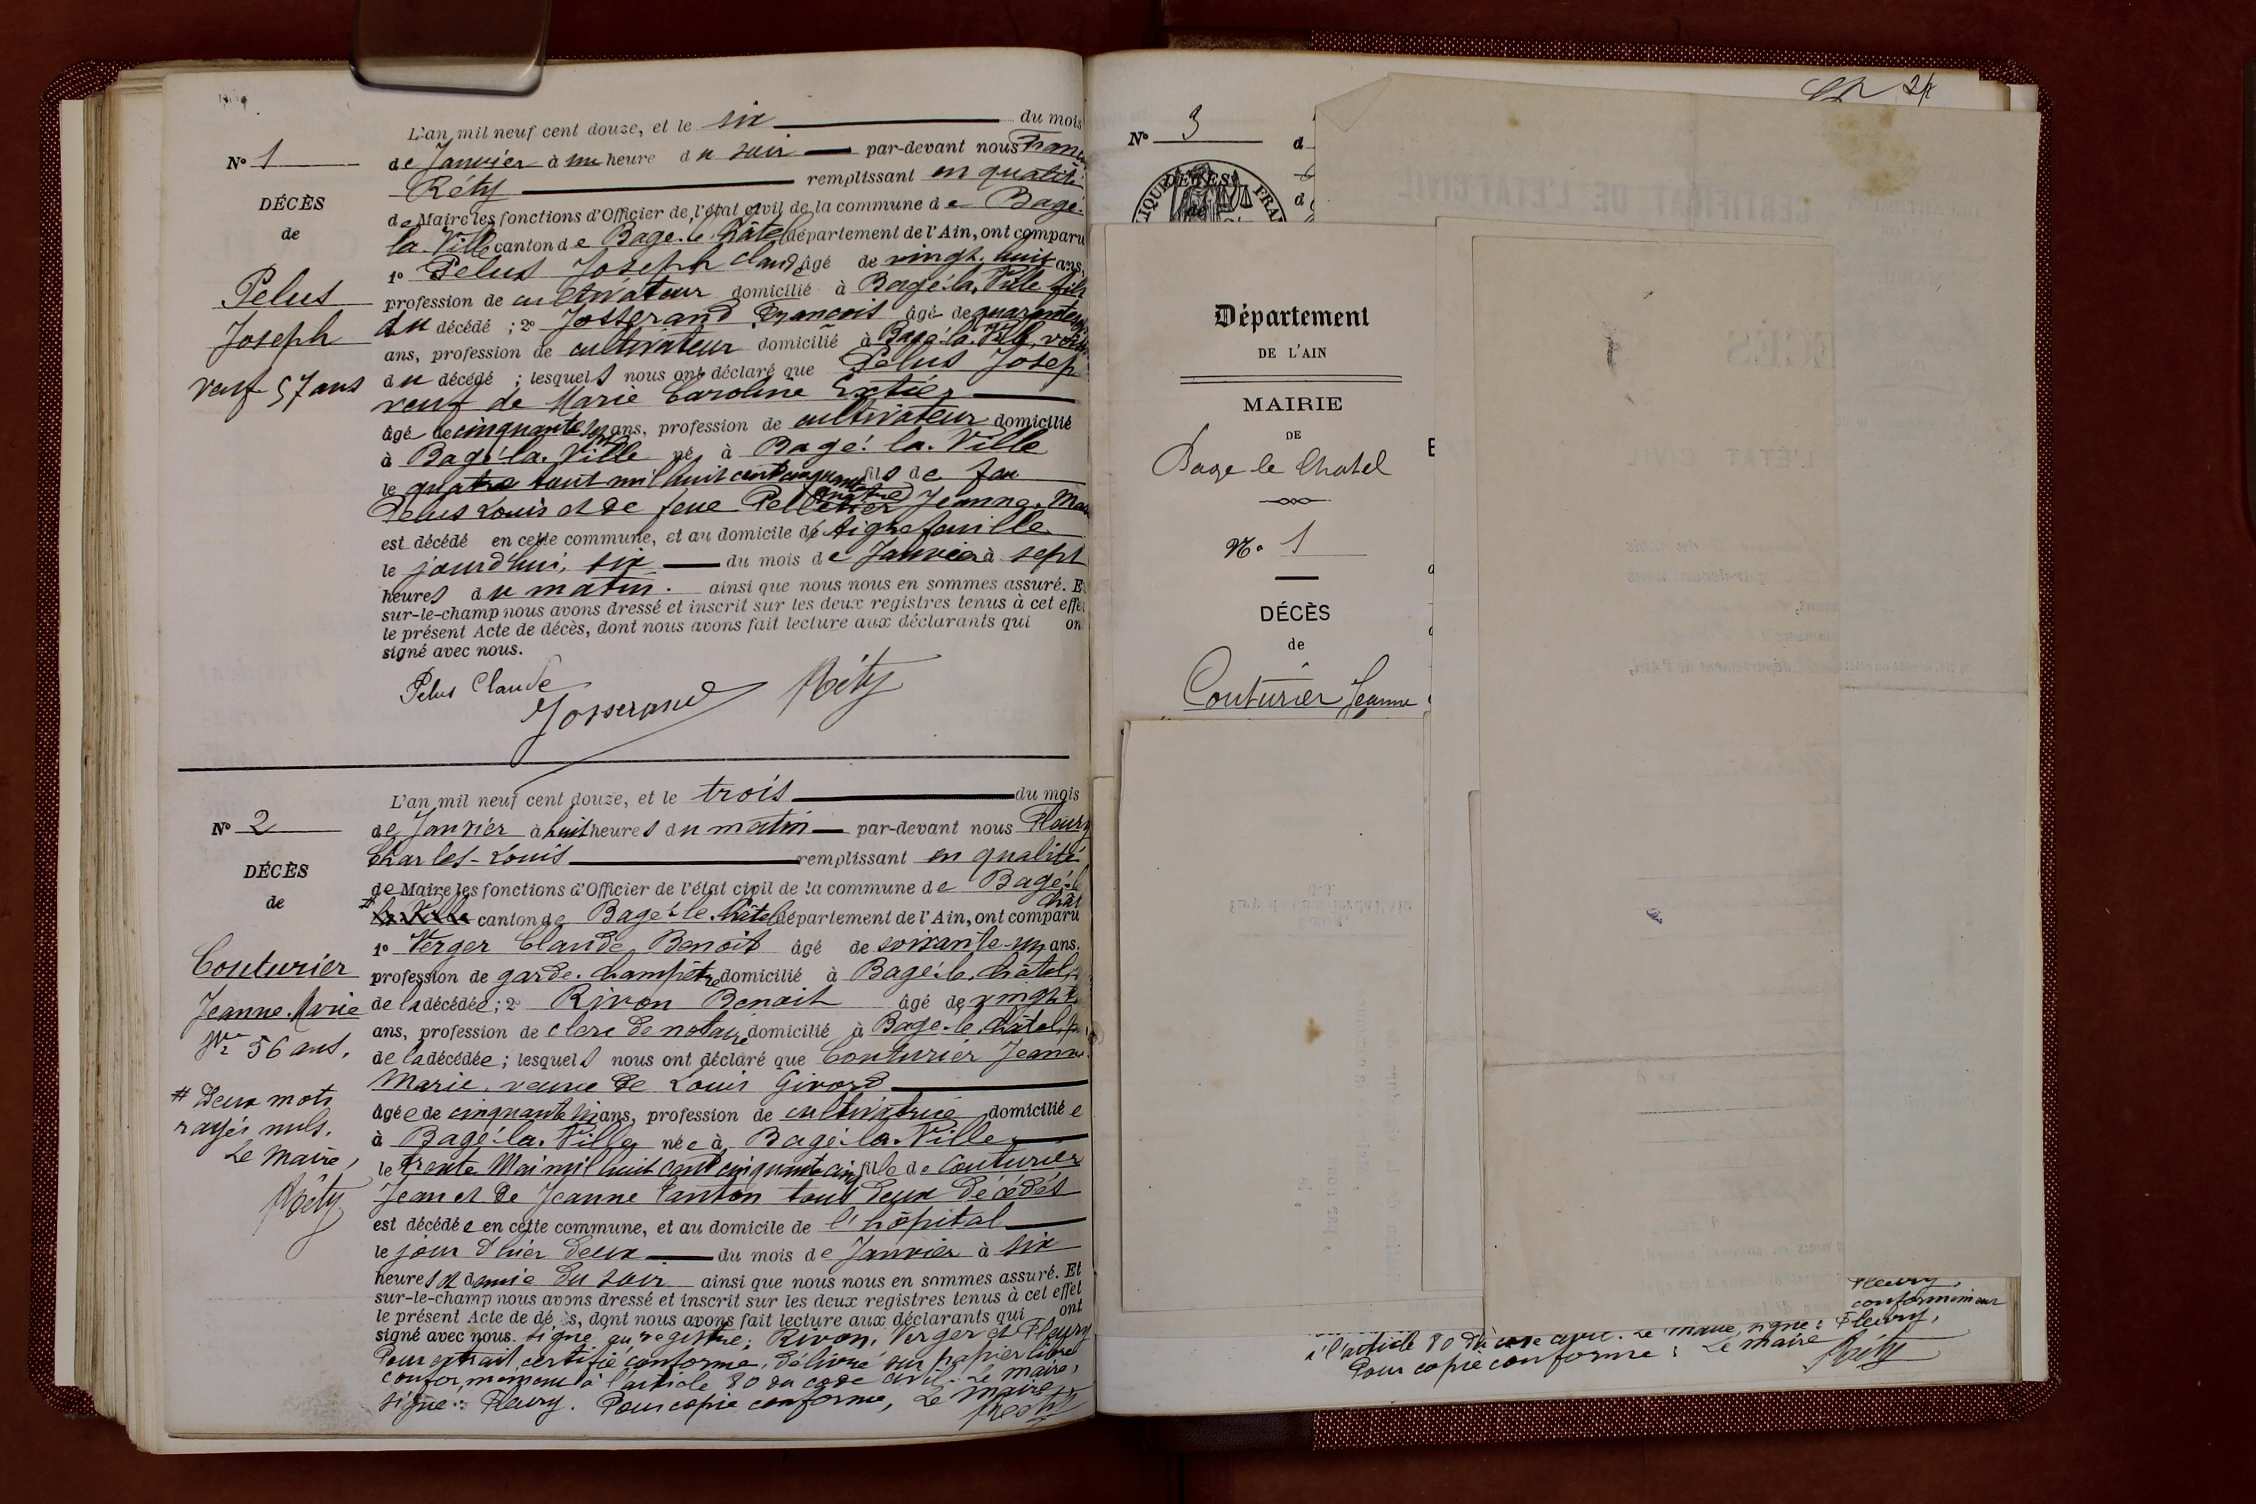 L'an mil neuf cent douze, et le six du mois
N° 1
de Janvier à une heure du soir par-devant nous
Réty remplissant en qualité
DÉCÈS
de Maire les fonctions d'Officier de l'état civil de la commune de Bagé-
de
la-Ville canton de Bagé-le-Châtel département de l'Ain, ont comparu
1° Pelus Joseph Claude âgé de vingt-huit ans,
Pelus
profession de cultivateur domicilié à Bagé-la-Ville fils
Joseph
du décédé ; 2° Josserand François âgé de
ans, profession de cultivateur domicilié à Bagé-la-Ville, voisin
veuf 57 ans
du décédé ; lesquels nous ont déclaré que Pelus Josep
veuf de Marie Caroline
âgé de cinquante sept ans, profession de cultivateur domicilié
à Bagé-la-Ville né à Bagé-la-Ville
le quatre août mil huit cent cinquante quatre fils de feu
Pelus Louis et de feue Pelletier Jeanne-Mar
est décédé en cette commune, et au domicile de Aigrefeuille
le jourd'hui, six du mois de Janvier à sept
heures du matin. ainsi que nous nous en sommes assuré. Et
sur-le-champ nous avons dressé et inscrit sur les deux registres tenus à cet effet
le présent Acte de décès, dont nous avons fait lecture aux déclarants qui on
signé avec nous.
Pelus Claude
Josserand
Réty
L'an mil neuf cent douze, et le trois du mois
N° 2
de Janvier à huit heures du matin par-devant nous Fleury
Charles-Louis remplissant en qualité
DÉCÈS
de Maire les fonctions d'Officier de l'état civil de la commune de Bagé-le
de
Chât
# la Ville canton de Bagé-le-Châtel département de l'Ain, ont comparu
1° Verger Claude Benoit âgé de soixante-un ans.
Couturier
profession de garde-champêtre domicilié à Bagé-le-Châtel,
Jeanne Marie
de la décédée ; 2° Rivon Benoit âgé de vingt
ans, profession de clerc de notaire domicilié à Bagé-le-Châtel,
Vve 56 ans.
de la décédée ; lesquels nous ont déclaré que Couturier Jeanne
Marie, veuve de Louis Givord
# Deux mots
rayés nuls.
Le Maire,
Réty
âgée de cinquante six ans, profession de cultivatrice domiciliée
à Bagé-la-Ville née à Bagé-la-Ville
le trente Mai mil huit cent cinquante cinq fille de Couturier
Jean et de Jeanne Canton tous deux décédés
est décédée en cette commune, et au domicile de l'hôpital
le jour d'hier deux du mois de Janvier à six
heures et demie du soir ainsi que nous nous en sommes assuré. Et
sur-le-champ nous avons dressé et inscrit sur les deux registres tenus à cet effet
le présent Acte de décès, dont nous avons fait lecture aux déclarants qui ont
signé avec nous. Signé au registre : Rivon, Verger et Fleury
Pour extrait certifié conforme, délivré sur papier libre
conformément à l'article 80 du code civil. Le maire,
signé : Fleury. Pour copie conforme, Le Maire
Réty
24
N° 3
d
d
Département
DE L'AIN
MAIRIE
DE
Bage le Chatel
N° 1
DÉCÈS
de
Couturier Jeanne
Fleury,
conformément
à l'article 80 du code civil. Le maire, signé : Fleury,
Pour copie conforme : Le maire
Réty